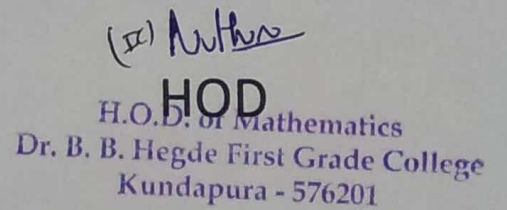 HOD
H.O.D. of Mathematics
Dr. B. B. Hegde First Grade College
Kundapura - 576201